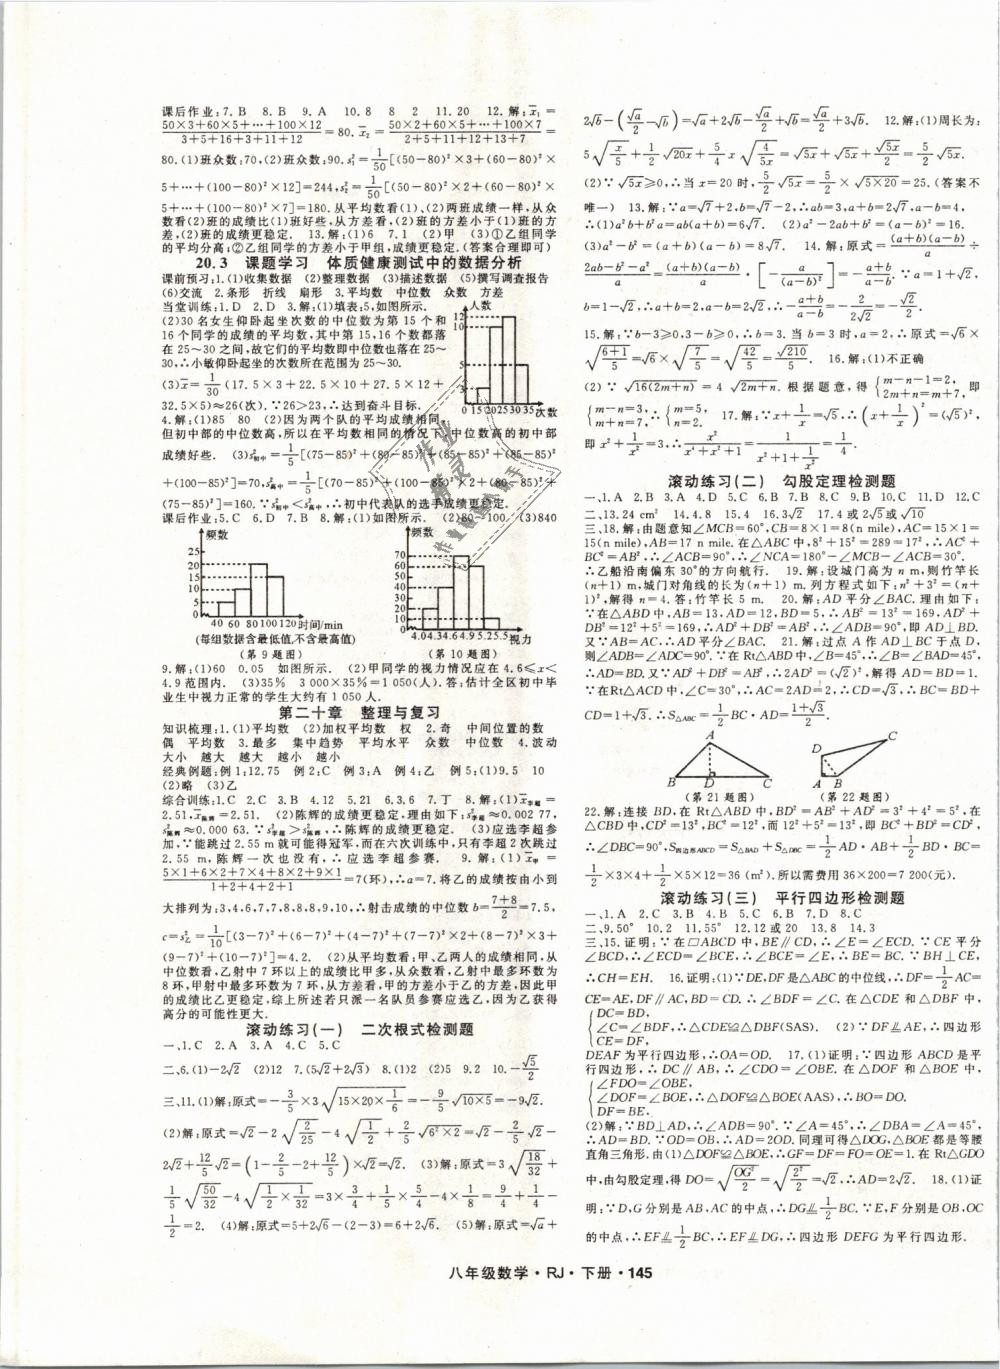 课后作业:7.B 8.B 9.A 10.8 8 2 11.20 12.解:x̄₁=
(50×3+60×5+…+100×12)/(3+5+16+3+11+12)=80.x̄₂=(50×2+60×5+…+100×7)/(2+5+11+12+13+7)=
80.(1)班众数:70,(2)班众数:90.s₁²=1/50[(50-80)²×3+(60-80)²×
5+…+(100-80)²×12]=244,s₂²=1/50[(50-80)²×2+(60-80)²×
5+…+(100-80)²×7]=180.从平均数看(1)、(2)两班成绩一样,从众
数看(2)班的成绩比(1)班好些,从方差看,(2)班的方差小于(1)班的方
差,(2)班的成绩更稳定. 13.解:(1)6 7.1 (2)甲 (3)①乙组同学
的平均分高;②乙组同学的方差小于甲组,成绩更稳定.(答案合理即可)
20.3 课题学习 体质健康测试中的数据分析
课前预习:1.(1)收集数据 (2)整理数据 (3)描述数据 (5)撰写调查报告
(6)交流 2.条形 折线 扇形 3.平均数 中位数 众数 方差
当堂训练:1.D 2.D 3.解:(1)填表:5,如图所示.
(2)30名女生仰卧起坐次数的中位数为第15个和
16个同学的成绩的平均数,其中第15,16个数都落
在25~30之间,故它们的平均数即中位数也落在25~
30,∴小敏仰卧起坐的次数所在范围为25~30.
(3)x̄=1/30(17.5×3+22.5×10+27.5×12+
32.5×5)≈26(次).∵26>23,∴达到奋斗目标.
人数
12
10
5
3
0 15 20 25 30 35 次数
4.解:(1)85 80 (2)因为两个队的平均成绩相同,
但初中部的中位数高,所以在平均数相同的情况下,中位数高的初中部
成绩好些. (3)s²初中=1/5[(75-85)²+(80-85)²+(85-85)²+(85-85)²
+(100-85)²]=70,s²高中=1/5[(70-85)²+(100-85)²×2+(80-85)²+
(75-85)²]=160.∵s²初中<s²高中,∴初中代表队的选手成绩更稳定.
课后作业:5.C 6.D 7.B 8.解:(1)如图所示. (2)80~100 (3)840
频数
25
20
15
10
5
0
40 60 80 100 120 时间/min
(每组数据含最低值,不含最高值)
(第9题图)
频数
70
60
50
40
30
20
10
0
4.0 4.3 4.6 4.9 5.2 5.5 视力
(第10题图)
9.解:(1)60 0.05 如图所示. (2)甲同学的视力情况应在4.6≤x<
4.9范围内. (3)35% 3 000×35%=1 050(人).答:估计全区初中毕
业生中视力正常的学生大约有1 050人.
第二十章 整理与复习
知识梳理:1.(1)平均数 (2)加权平均数 权 2.奇 中间位置的数
偶 平均数 3.最多 集中趋势 平均水平 众数 中位数 4.波动
大小 越大 越大 越小 越小
经典例题:例1:12.75 例2:C 例3:A 例4:乙 例5:(1)9.5 10
(2)略 (3)乙
综合训练:1.C 2.C 3.B 4.12 5.21 6.3,6 7.丁 8.解:(1)x̄李超=
2.51,x̄陈辉=2.51. (2)陈辉的成绩更稳定,理由如下:s²李超≈0.002 77,
s²陈辉≈0.000 63.∵s²李超>s²陈辉,∴陈辉的成绩更稳定. (3)应选李超参
加,∵能跳过2.55 m就可能得冠军,而在六次训练中,只有李超2次跳过
2.55 m,陈辉一次也没有,∴应选李超参赛. 9.解:(1)x̄甲=
(5×1+6×2+7×4+8×2+9×1)/(1+2+4+2+1)=7(环),∴a=7.将乙的成绩按由小到
大排列为:3,4,6,7,7,8,8,8,9,10,∴射击成绩的中位数b=(7+8)/2=7.5,
c=s²乙=1/10[(3-7)²+(6-7)²+(4-7)²+(7-7)²×2+(8-7)²×3+
(9-7)²+(10-7)²]=4.2. (2)从平均数看:甲、乙两人的成绩相同,从
中位数看,乙射中7环以上的成绩比甲多,从众数看,乙射中最多环数为
8环,甲射中最多环数为7环,从方差看,甲的方差小于乙的方差,因此甲
的成绩比乙更稳定,综上所述若只派一名队员参赛应选乙,因为乙获得
高分的可能性更大.
滚动练习(一) 二次根式检测题
一、1.C 2.A 3.A 4.C 5.C
二、6.(1)-2√2 (2)12 7.(5√2+2√3) 8.(1)2 (2)5 9.2 10.-√5/2
三、11.(1)解:原式=-3/5×3√(15×20×1/6)=-9/5√(10×5)=-9√2.
(2)解:原式=√2-2√(2/25)-4√(1/2)+2/5√(6²×2)=√2-2/5√2-
2√2+12/5√2=(1-2/5-2+12/5)×√2=√2. (3)解:原式=3√(18/32)+
1/5√(50/32)-4√(1/2×1/32)=3×3/4+1/5×5/4-4×1/8=9/4+1/4-
1/2=2. (4)解:原式=5+2√6-(2-3)=6+2√6. (5)解:原式=√a+
2√b-(√a/2-√b)=√a+2√b-√a/2+√b=√a/2+3√b. 12.解:(1)周长为:
5√(x/5)+1/2√(20x)+5/4x√(4/(5x))=√(5x)+√(5x)+√(5x)/2=5/2√(5x).
(2)∵√(5x)≥0,∴当x=20时,5/2√(5x)=5/2×√(5×20)=25.(答案不
唯一) 13.解:∵a=√7+2,b=√7-2,∴ab=3,a+b=2√7,a-b=4,
∴(1)a²b+b²a=ab(a+b)=6√7. (2)a²-2ab+b²=(a-b)²=16.
(3)a²-b²=(a+b)(a-b)=8√7. 14.解:原式=(a+b)(a-b)/a÷
(2ab-b²-a²)/a=(a+b)(a-b)/a·[-a/(a-b)²]=-(a+b)/(a-b).∵a=1+√2,
b=1-√2,∴a+b=2,a-b=2√2,∴-(a+b)/(a-b)=-2/(2√2)=-√2/2.
15.解:∵b-3≥0,3-b≥0,∴b=3.当b=3时,a=2,∴原式=√6×
√((6+1)/5)=√6×√(7/5)=√(42/5)=√210/5. 16.解:(1)不正确
(2)∵√(16(2m+n))=4√(2m+n).根据题意,得{m-n-1=2,2m+n=m+7,即
{m-n=3,m+n=7,∴{m=5,n=2. 17.解:∵x+1/x=√5,∴(x+1/x)²=(√5)²,
即x²+1/x²=3,∴(x²/x²)/((x⁴+x²+1)/x²)=1/(x²+1+1/x²)=1/4.
滚动练习(二) 勾股定理检测题
一、1.A 2.B 3.A 4.D 5.C 6.B 7.B 8.C 9.B 10.C 11.D 12.C
二、13.24 cm² 14.4.8 15.4 16.3√2 17.4或2√5或√10
三、18.解:由题意知∠MCB=60°,CB=8×1=8(n mile),AC=15×1=
15(n mile),AB=17 n mile.在△ABC中,8²+15²=289=17²,∴AC²+
BC²=AB²,∴∠ACB=90°,∴∠NCA=180°-∠MCB-∠ACB=30°.
∴乙船沿南偏东30°的方向航行. 19.解:设城门高为n m,则竹竿长
(n+1)m,城门对角线的长为(n+1)m.列方程式如下:n²+3²=(n+
1)²,解得n=4.答:竹竿长5 m. 20.解:AD平分∠BAC.理由如下:
∵在△ABD中,AB=13,AD=12,BD=5,∴AB²=13²=169,AD²+
DB²=12²+5²=169,∴AD²+DB²=AB²,∴∠ADB=90°,即AD⊥BD.
又∵AB=AC.∴AD平分∠BAC. 21.解:过点A作AD⊥BC于点D,
则∠ADB=∠ADC=90°.∵在Rt△ABD中,∠B=45°,∴∠B=∠BAD=45°,
∴AD=BD,又∵AD²+DB²=AB²,∴2AD²=(√2)²,解得AD=BD=1.
∵在Rt△ACD中,∠C=30°,∴AC=2AD=2,∴CD=√3,∴BC=BD+
CD=1+√3.∴S△ABC=1/2BC·AD=(1+√3)/2.
A
B D C
(第21题图)
C
D
A B
(第22题图)
22.解:连接BD,在Rt△ABD中,BD²=AB²+AD²=3²+4²=5²,在
△CBD中,CD²=13²,BC²=12²,而12²+5²=13²,即BC²+BD²=CD²,
∴∠DBC=90°,S四边形ABCD=S△BAD+S△DBC=1/2AD·AB+1/2BD·BC=
1/2×3×4+1/2×5×12=36(m²).所以需费用36×200=7 200(元).
滚动练习(三) 平行四边形检测题
一、1.A 2.C 3.B 4.B 5.C 6.B 7.D 8.C
二、9.50° 10.2 11.55° 12.12或20 13.8 14.3
三、15.证明:∵在□ABCD中,BE∥CD,∴∠E=∠ECD.∵CE平分
∠BCD,∴∠ECD=∠BCE,∴∠BCE=∠E,∴BE=BC.∵BH⊥CE,
∴CH=EH. 16.证明:(1)∵DE,DF是△ABC的中位线,∴DF=1/2AC=
CE=AE,DF∥AC,BD=CD.∴∠BDF=∠C.在△CDE和△DBF中,
{DC=BD,
∠C=∠BDF,∴△CDE≌△DBF(SAS). (2)∵DF⫽AE,∴四边形
CE=DF,
DEAF为平行四边形,∴OA=OD. 17.(1)证明:∵四边形ABCD是平
行四边形,∴DC∥AB,∴∠CDO=∠OBE.在△DOF和△BOE中,
{∠FDO=∠OBE,
∠DOF=∠BOE,∴△DOF≌△BOE(AAS),∴BO=DO.
DF=BE.
(2)解:∵BD⊥AD,∴∠ADB=90°.∵∠A=45°,∴∠DBA=∠A=45°,
∴AD=BD.∵OD=OB,∴AD=2OD.同理可得△DOG,△BOE都是等腰
直角三角形.由(1)△DOF≌△BOE,∴GF=DF=FO=OE=1.在Rt△GDO
中,由勾股定理,得DO=√(OG²/2)=√(2²/2)=√2,∴AD=2√2. 18.(1)证
明:∵D,G分别是AB,AC的中点,∴DG⫽1/2BC.∵E,F分别是OB,OC
的中点,∴EF⫽1/2BC,∴EF⫽DG,∴四边形DEFG为平行四边形.
八年级数学·RJ·下册·145